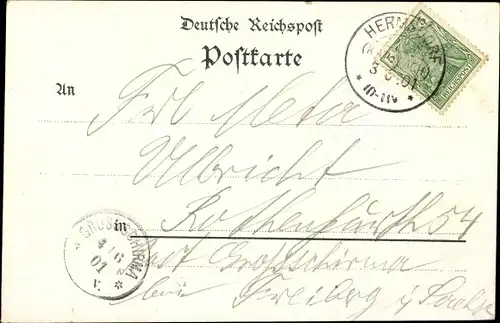 Deutsche Reichspost
Postkarte
An Frl Meta
Ulbricht
in Rothenfurth 54
Post Grossschirma
bei Freiberg i/Sachs
HERMSDORF
3 6 01
* 10-11V *
GROSSSCHIRMA
4/6
01
V. *